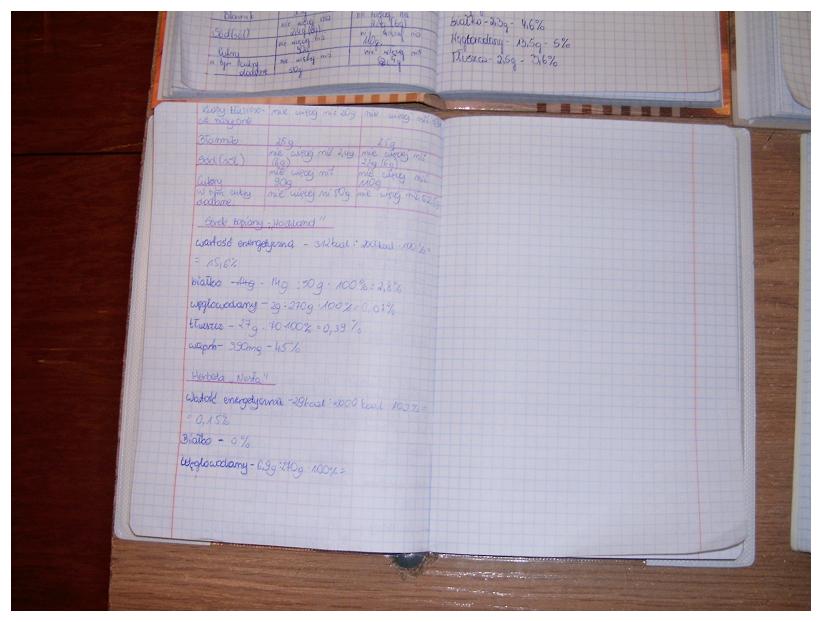 Błonnik
nie więcej niż
Sód (sól)
2,4g (6g)
nie więcej niż
110g
Cukry
90g
w tym cukry
nie więcej niż
dodane
50g
Białko - 2,3g - 4,6%
Węglowodany - 13,5g - 5%
Tłuszcz - 2,5g - 3,6%
Kwasy tłuszczo- nie więcej niż 20g nie więcej niż
we nasycone
Błonnik 25g 25g
Sód (sól) nie więcej niż 2,4g nie więcej niż
(6g) 2,4g (6g)
nie więcej niż nie więcej niż
Cukry 90g 110g
w tym cukry nie więcej ni 50g nie więcej niż
dodane
Serek topiony "Hochland"
wartość energetyczna - 312kcal : 2000kcal · 100% =
= 15,6%
białko - 14g : 50g · 100% = 2,8%
węglowodany - 2g : 270g · 100% = 0,07%
tłuszcz - 27g · 70·100% = 0,39%
wapń - 390mg - 45%
Herbata "Nestea"
Wartość energetyczna - 29kcal : 2000 kcal 100% =
= 0,15%
Białko - 0%
Węglowodany - 6,9g : 270g · 100% =